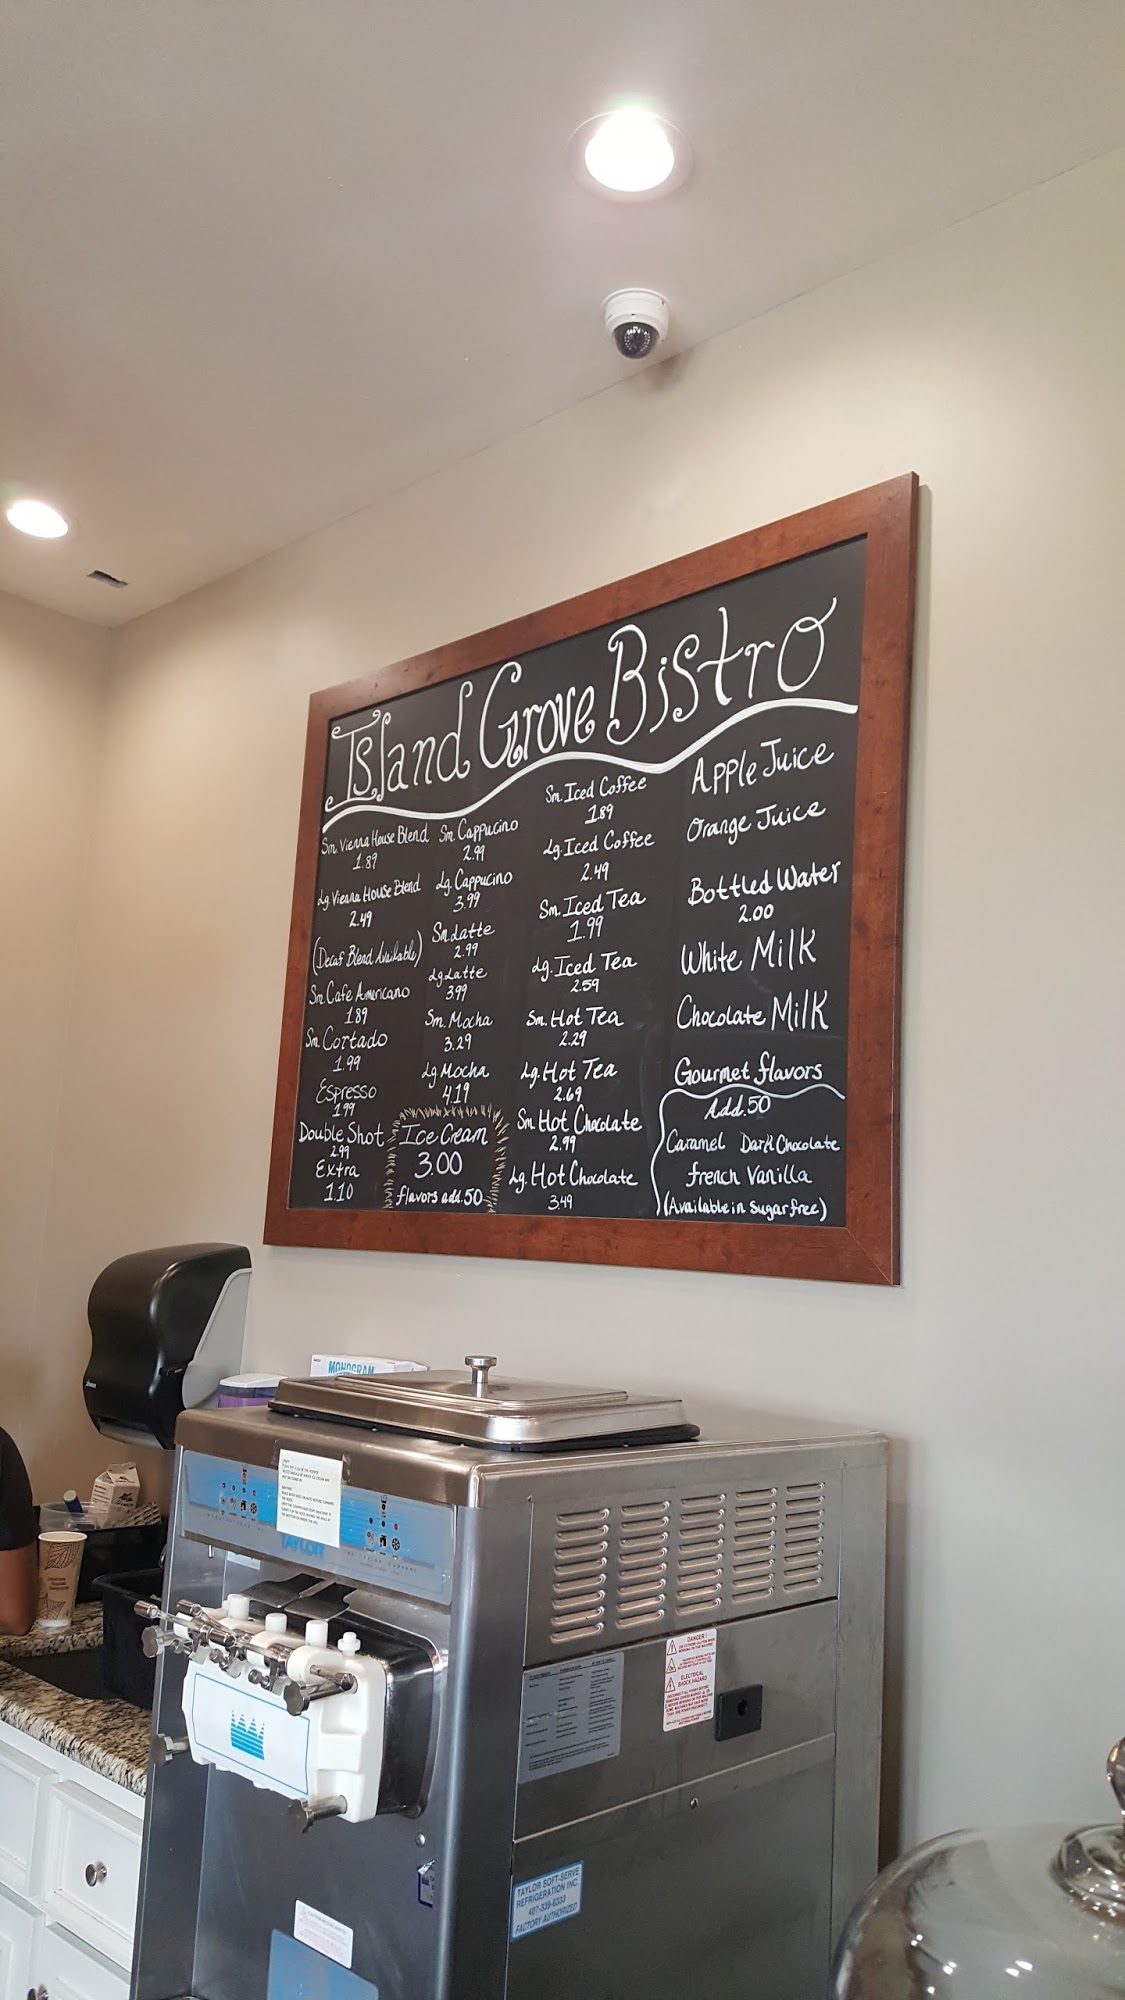 Island Grove Bistro
Sm. Vienna House Blend
1.89
Lg. Vienna House Blend
2.49
(Decaf Blend Available)
Sm. Cafe Americano
1.89
Sm. Cortado
1.99
Espresso
1.99
Double Shot
2.99
Extra
1.10
Sm. Cappucino
2.99
Lg. Cappucino
3.99
Sm. Latte
2.99
Lg Latte
3.99
Sm. Mocha
3.29
Lg Mocha
4.19
Ice Cream
3.00
flavors add .50
Sm. Iced Coffee
1.89
Lg. Iced Coffee
2.49
Sm. Iced Tea
1.99
Lg. Iced Tea
2.59
Sm. Hot Tea
2.29
Lg. Hot Tea
2.69
Sm. Hot Chocolate
2.99
Lg. Hot Chocolate
3.49
Apple Juice
Orange Juice
Bottled Water
2.00
White Milk
Chocolate Milk
Gourmet flavors
Add .50
Caramel Dark Chocolate
french Vanilla
(Available in sugar free)
MONOGRAM
TAYLOR
DANGER!
ELECTRICAL
SHOCK HAZARD
TAYLOR SOFT-SERVE
REFRIGERATION INC.
407-339-6333
FACTORY AUTHORIZED